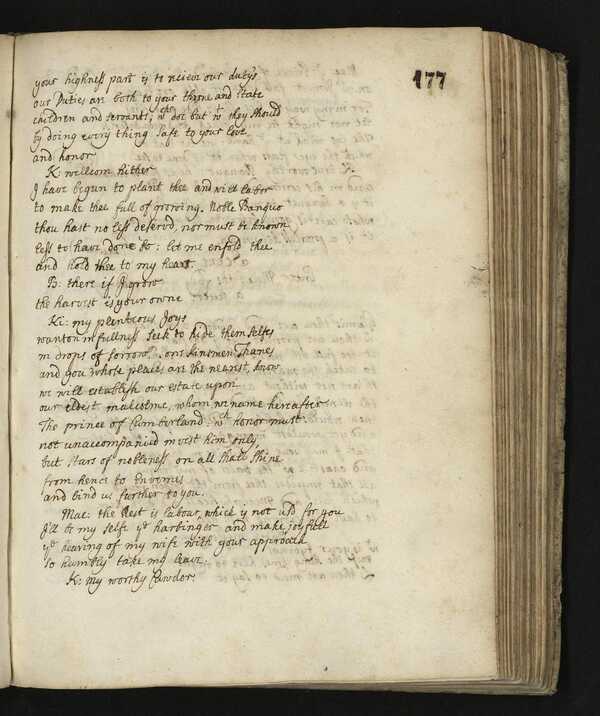 177
your highness part is to reieve our duty's
our Duties are both to your throne and state
children and servants; wch doe but wt they should
by doing every thing safe to your love
and honor
K: wellcom hither
I have begun to plant thee and will labor
to make thee full of growing. Noble Banquo
thou hast no less deservd, nor must be known
less to have done so: let me enfold thee
and hold thee to my heart.
B: there if I grow
the harvest is your owne
Ki: my plenteous Joys
wanton in fullness seek to hide themselfes
in drops of sorrow. ons kinsmen Thanes
and you whose places are the nearest, know
we will establish our estate upon
our eldest malcolme, whom we name hereafter
The prince of Cumberland: wch honor must
not unaccompanied invest him only,
but stars of nobleness on all shall shine
from hence to Envernes
and bind us further to you.
Mac: the Rest is labour, which is not usd for you
I'll be my selfe ye harbinger and make joyfull
ye hearing of my wife with your approach
so humbly take my leave.
K: my worthy Cawdor